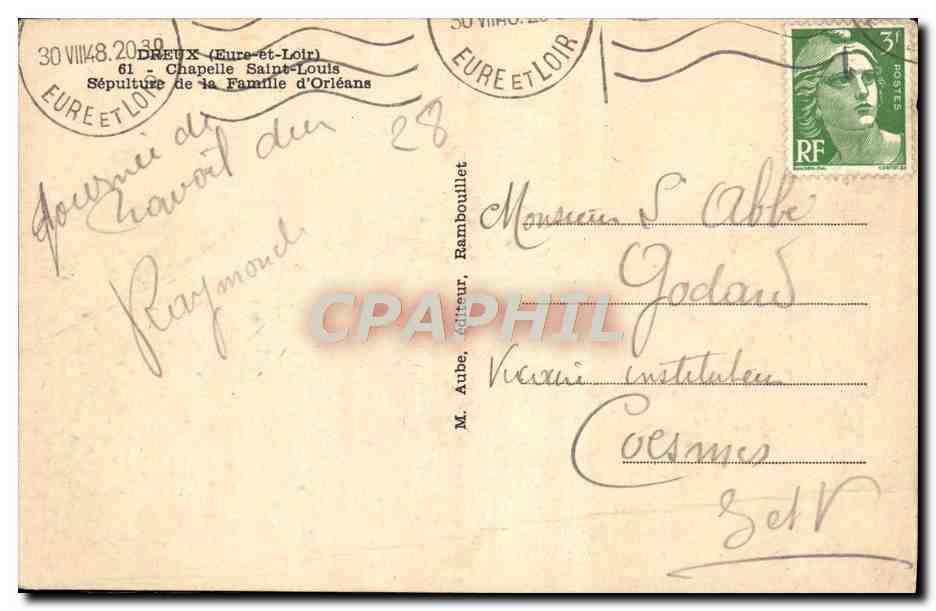 30 VIII48.20 30
EURE ET LOIR
30 VIII48.20 30
EURE ET LOIR
DREUX (Eure-et-Loir)
61 - Chapelle Saint-Louis
Sépulture de la Famille d'Orléans
3F
POSTES
RF
28
Journée de
Raymond
M. Aube, éditeur, Rambouillet
CPAPHIL
Monsieur l'Abbé
Godard
Vicaire instituteur
Coesmes
I et V